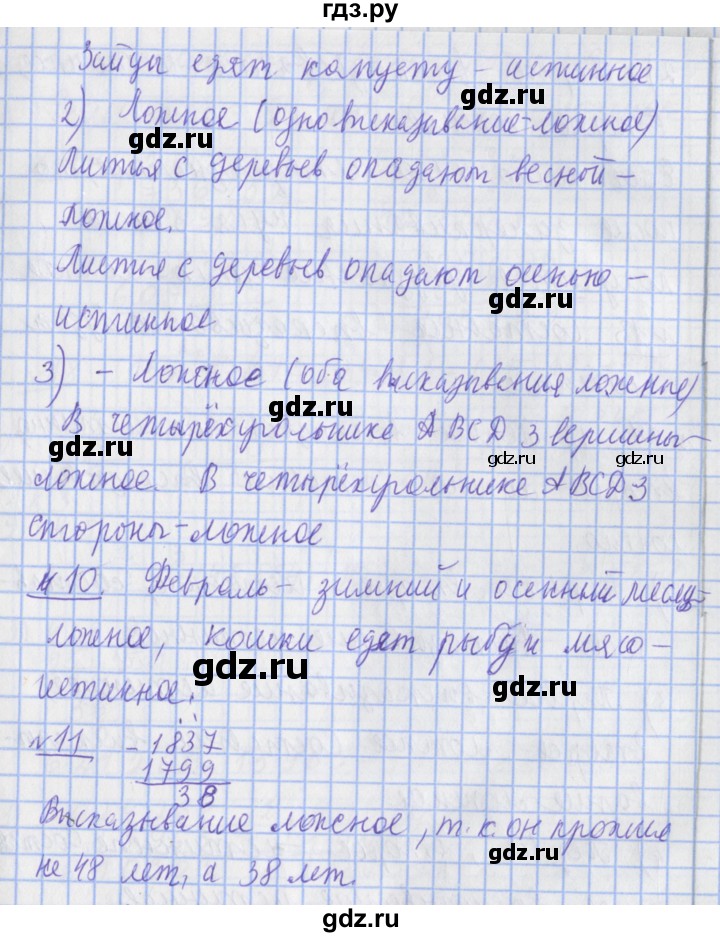 гдз.ру
Зайцы едят капусту - истинное
2) Ложное (одно высказывание - ложное)
gdz.ru gdz.ru
Листья с деревьев опадают весной -
gdz.ru
ложное.
Листья с деревьев опадают осенью -
gdz.ru gdz.ru
истинное
3) - Ложное (оба высказывания ложные)
gdz.ru
В четырёхугольнике ABCD 3 вершины -
gdz.ru gdz.ru gdz.ru
ложное. В четырёхугольнике ABCD 3
стороны - ложное
№10. Февраль - зимний и осенний месяц -
ложное, кошки едят рыбу и мясо -
gdz.ru gdz.ru
истинное.
№11 - 1837
1799
38
Высказывание ложное, т.к. он прожил
gdz.ru
не 48 лет, а 38 лет.
gdz.ru